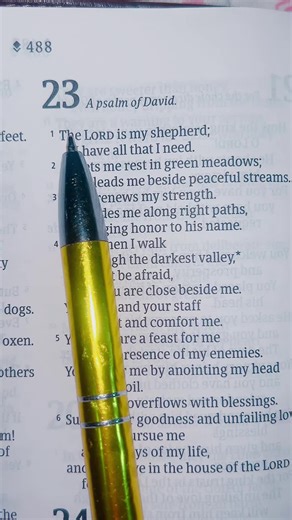 488
23 A psalm of David.
feet.
1 The LORD is my shepherd;
have all that I need.
2 ets me rest in green meadows;
leads me beside peaceful streams.
3 renews my strength.
des me along right paths,
ging honor to his name.
4 hen I walk
y gh the darkest valley,*
t be afraid,
u are close beside me.
dogs. Y and your staff
t and comfort me.
oxen. 5 Y are a feast for me
resence of my enemies.
others Yo me by anointing my head
oil.
overflows with blessings.
6 Su goodness and unfailing lov
m! ursue me
of ys of my life,
and e in the house of the LORD
f
the 24